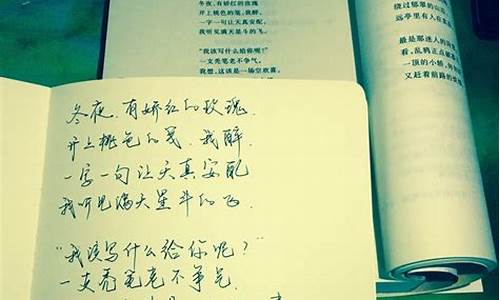 冬夜，有娇红的玫瑰
开上桃色的笺，我醉，
一字一句让天真安配，
我听见满天星斗的飞。
“我该写什么给你呢？”
一支秃笔老不争气，
我想，这该是一场空欢喜，
绕过郁翠的山
远亭里有人在
最是那迷人的
看，乱鸦正点破
一顶的小轿，
又赶着前路的
冬夜，有娇红的玫瑰，
开上桃色的笺，我醉．
一字一句让天真安配
我听见满天星斗的飞．
“我该写什么给你呢？”
一支秃笔老不争气．